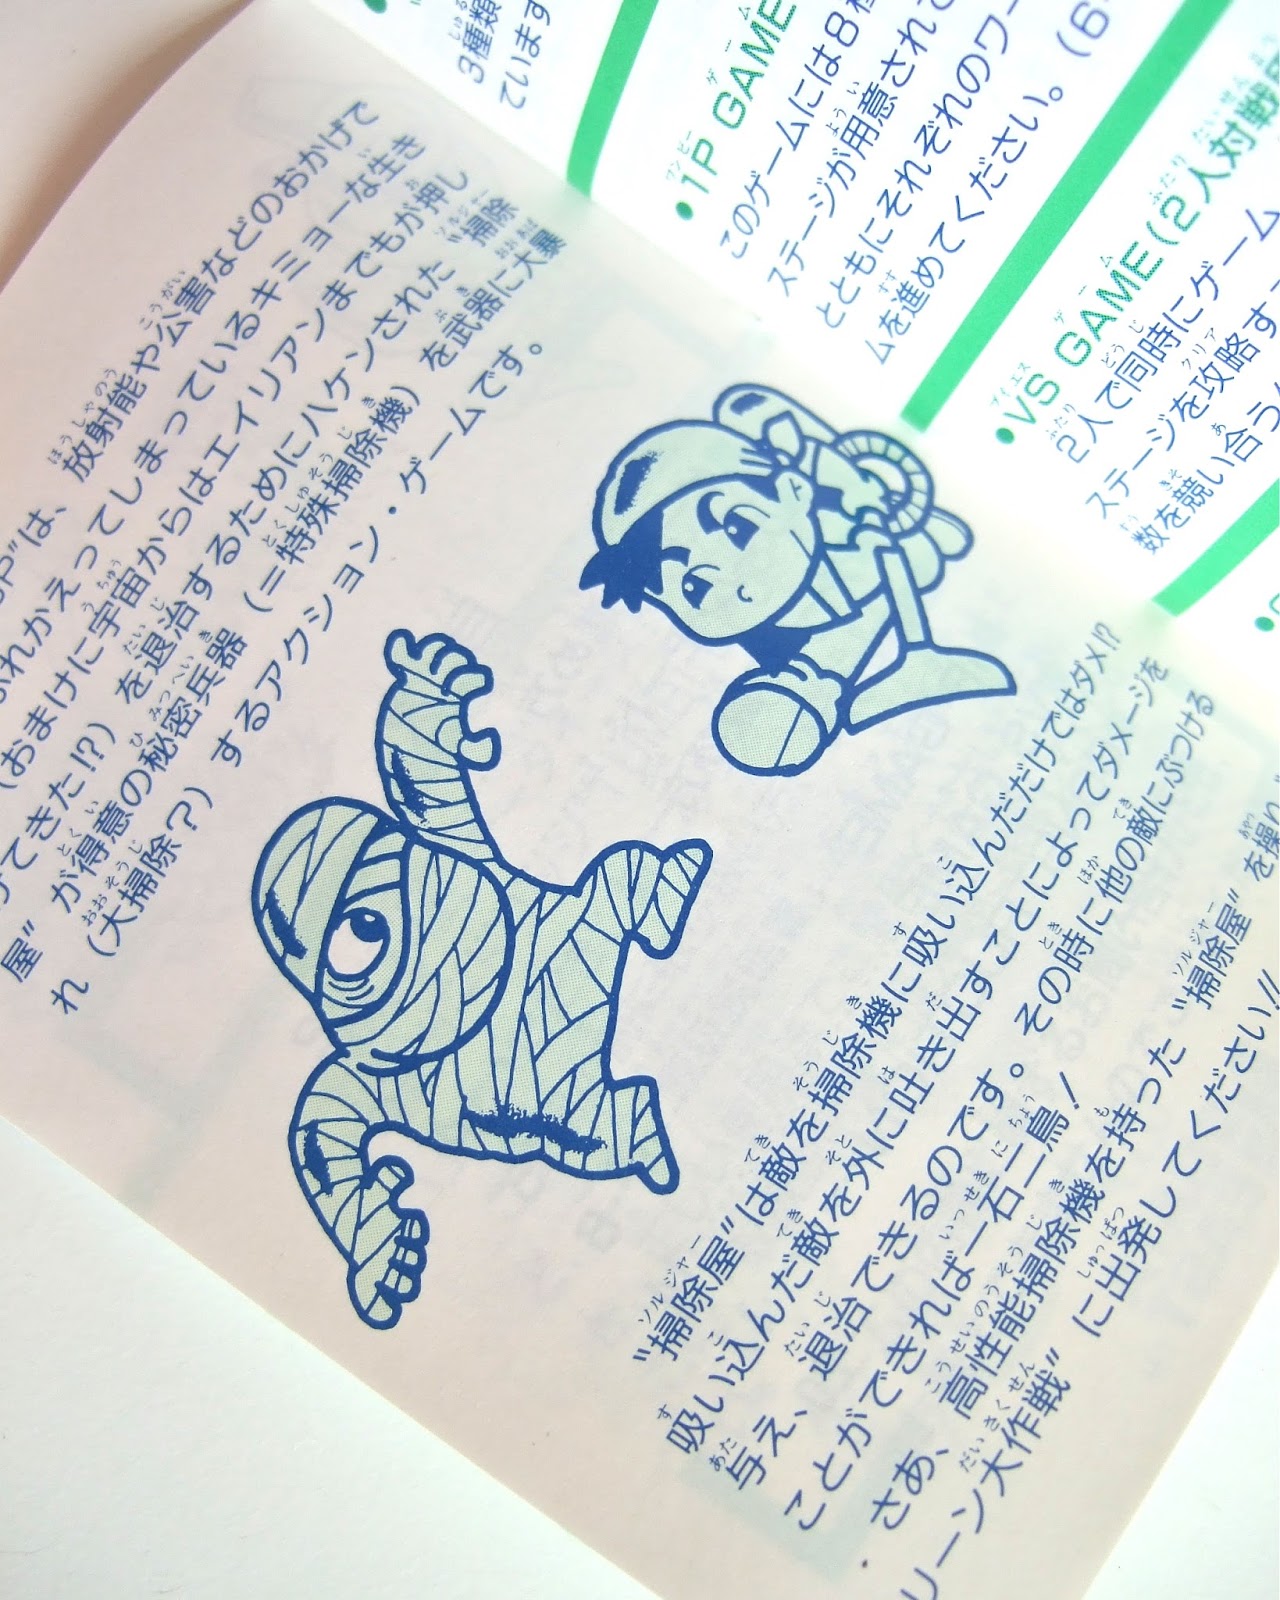 P”は、放射能や公害などのおかげで
ふれかえってしまっているキミョーな生き
(おまけに宇宙からはエイリアンまでもが押し
てきた!?) を退治するためにハケンされた “掃除
屋” が得意の秘密兵器 (=特殊掃除機) を武器に大暴
れ (大掃除?) するアクション・ゲームです。
“掃除屋”は敵を掃除機に吸い込んだだけではダメ!?
吸い込んだ敵を外に吐き出すことによってダメージを
与え、退治できるのです。その時に他の敵にぶつける
ことができれば一石二鳥!
さあ、高性能掃除機を持った “掃除屋” を操り“
リーン大作戦” に出発してください!!
3種類
ています
•1P GAME
このゲームには8種
ステージが用意されて
とともにそれぞれのワー
ムを進めてください。(6
•VS GAME(2人対戦
2人で同時にゲーム
ステージを攻略す
数を競い合う